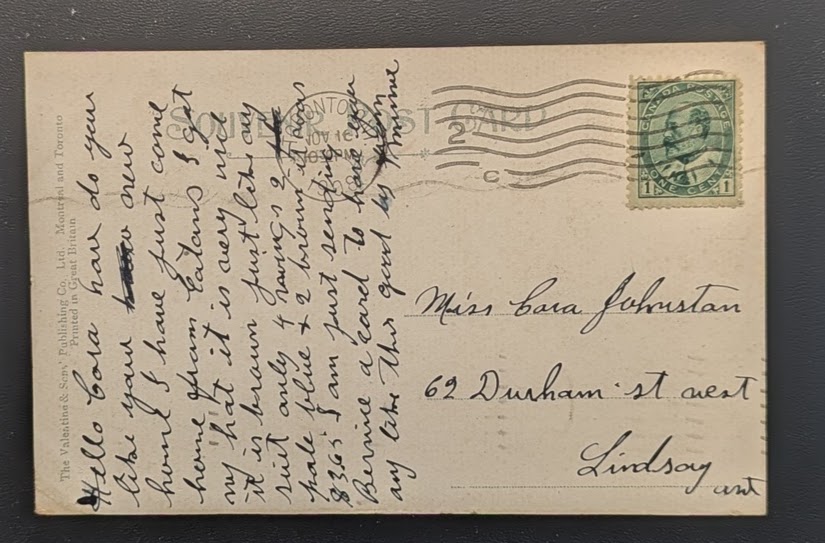 SOUVENIR POST CARD
The Valentine & Sons' Publishing Co, Ltd. Montreal and Toronto
Printed in Great Britain
Hello Cora how do you
like your new
home I have just come
home from Eatons I got
my hat it is very nice
it is brown just like my
suit only 4 2
pale blue & 2 brown it was
$3.65 I am just sending
Bernice a card to have you
any like this good by
Minnie
NOV 16
2
C
CANADA POSTAGE
1 ONE CENT 1
Miss Cora Johnston
62 Durham st west
Lindsay
ont